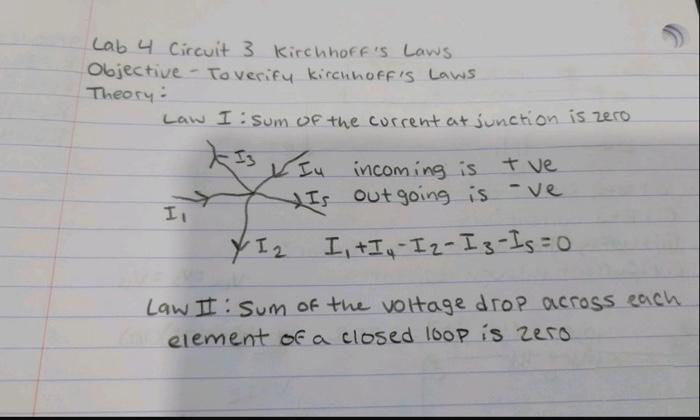 Lab 4 Circuit 3 Kirchhoff's Laws
Objective - To verify Kirchhoff's Laws
Theory:
Law I: Sum of the current at junction is zero
I3
I4 incoming is +ve
I1
I5 outgoing is -ve
I2 I1+I4-I2-I3-I5=0
Law II: Sum of the voltage drop across each
element of a closed loop is zero